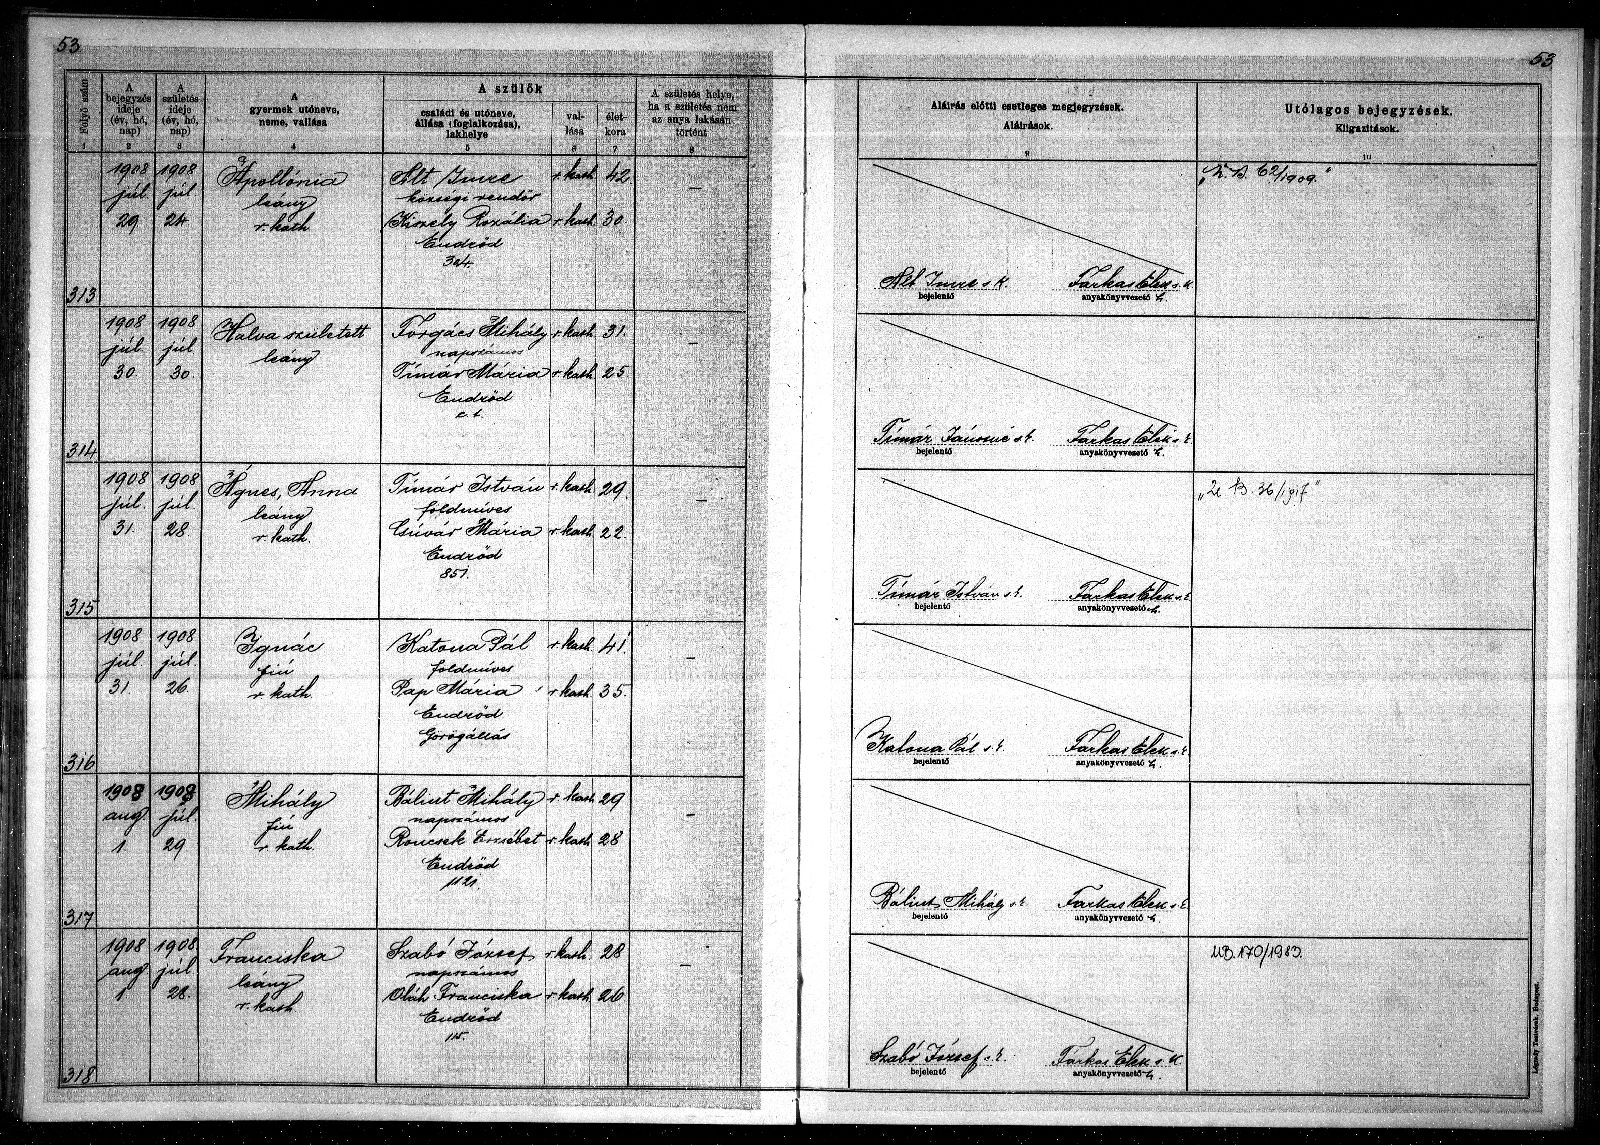 53
53
Folyó szám
A bejegyzés ideje (év, hó, nap)
A születés ideje (év, hó, nap)
A gyermek utóneve, neme, vallása
A szülők
családi és utóneve, állása (foglalkozása), lakhelye
vallása
életkora
A születés helye, ha a születés nem az anya lakásán történt
Aláírás előtti esetleges megjegyzések.
Aláírások.
Utólagos bejegyzések.
Kiigazítások.
1 2 3 4 5 6 7 8 9 10
1908 1908 Apollónia Alt Imre r. kath. 42 –
júl. júl. leány községi rendőr
29 24 r. kath. Kiszely Rozália r. kath. 30
Endrőd
324.
313
Alt Imre s. k. Farkas Elek s. k.
bejelentő anyakönyvvezető h.
„U. B. 62/1909."
1908 1908 Halva született Forgács Mihály r. kath. 31. –
júl. júl. leány napszámos
30. 30. Tímár Mária r. kath. 25
Endrőd
c. t.
314
Tímár Jánosné s. k. Farkas Elek s. k.
bejelentő anyakönyvvezető h.
1908 1908 Ágnes, Anna Tímár István r. kath. 29 –
júl. júl. leány földmíves
31. 28 r. kath. Csúvár Mária r. kath. 22.
Endrőd
851.
315
Tímár István s. k. Farkas Elek s. k.
bejelentő anyakönyvvezető h.
„U B. 36/1917"
1908 1908 Ignác Katona Pál r. kath. 41 –
júl. júl. fiú földmíves
31. 26 r. kath. Pap Mária r. kath. 35.
Endrőd
Gorógállás
316
Katona Pál s. k. Farkas Elek s. k.
bejelentő anyakönyvvezető h.
1908 1908 Mihály Bálint Mihály r. kath. 29 –
aug. júl. fiú napszámos
1 29 r. kath. Roncsek Erzsébet r. kath. 28
Endrőd
1121.
317
Bálint Mihály s. k. Farkas Elek s. k.
bejelentő anyakönyvvezető h.
1908 1908 Franciska Szabó József r. kath. 28 –
aug. júl. leány napszámos
1 28. r. kath. Oláh Franciska r. kath. 26
Endrőd
318
Szabó József s. k. Farkas Elek s. k.
bejelentő anyakönyvvezető h.
UB. 170/1983.
Légrády Testvérek, Budapest.